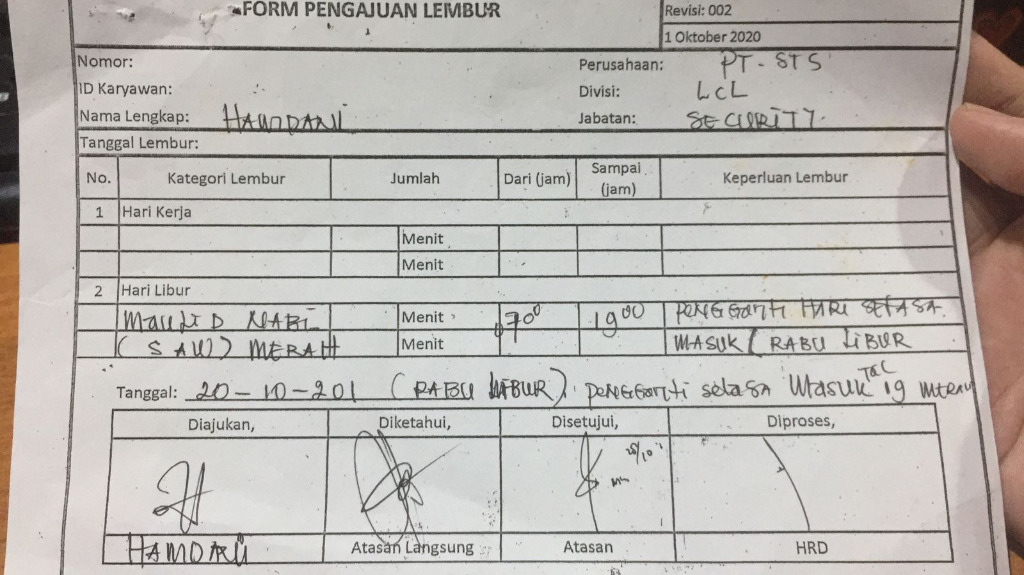 FORM PENGAJUAN LEMBUR
Revisi: 002
1 Oktober 2020
Nomor:
Perusahaan: PT-STS
ID Karyawan:
Divisi: LCL
Nama Lengkap: HAMDANI
Jabatan: SECURITY.
Tanggal Lembur:
No. Kategori Lembur Jumlah Dari (jam) Sampai (jam) Keperluan Lembur
1 Hari Kerja
Menit
Menit
2 Hari Libur
MAULID NABI Menit 0700 1900 PENGGANTI HARI SELASA
(SAW) MERAH Menit MASUK ( RABU LIBUR
Tanggal: 20-10-201 (RABU LIBUR), PENGGANTI selasa Masuk TGL 19 MERAH
Diajukan, Diketahui, Disetujui, Diproses,
HAMDANI Atasan Langsung Atasan HRD